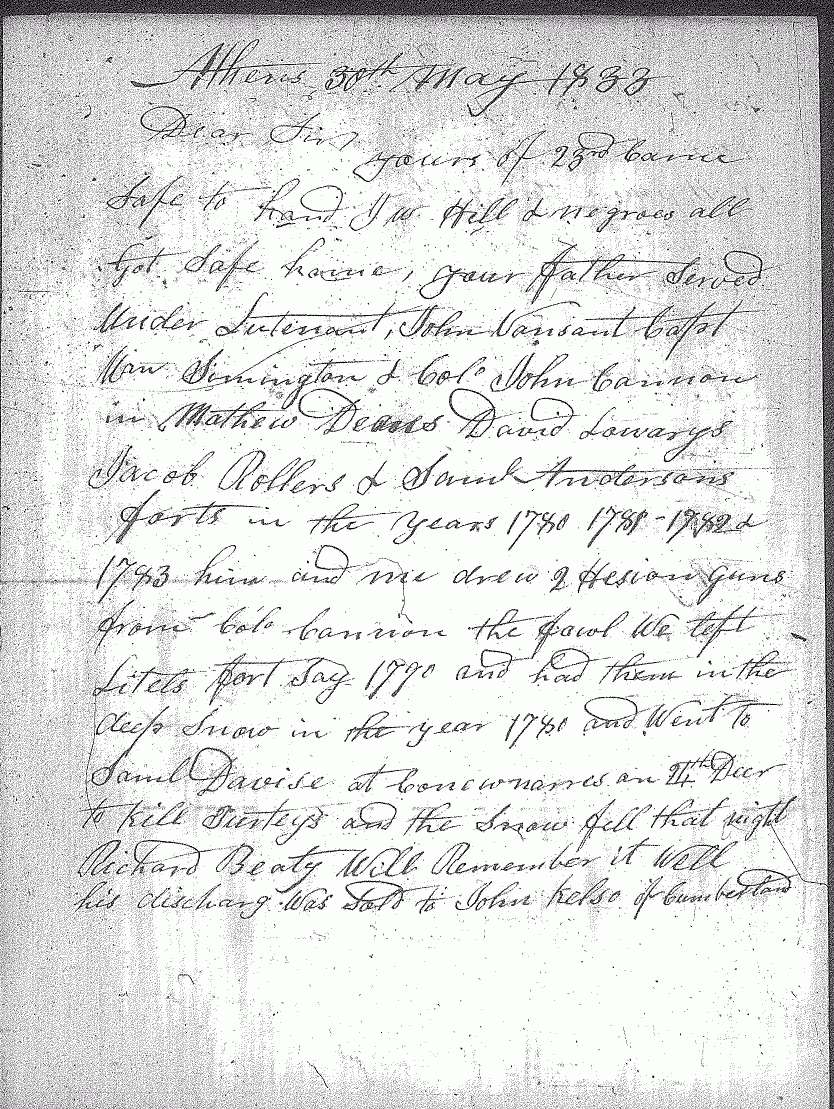 Athens 30th May 1833
Dear Sir
yours of 23rd Came
Safe to hand J W Hill & negroes all
Got Safe home, your father Served
Under Lutenant, John Vansant Capt
Simington & Colo John Cannon
in Mathew Deans David Lowarys
Jacob Rollers & Saml Andersons
forts in the years 1780 1781 - 1782 &
1783 him and me drew 2 Hesion Guns
from Colo Cannon the fawl We left
Litels fort Say 1790 and had them in the
deep Snow in the year 1780 and Went to
Saml Davise at on 24th Decr
to Kill Turkeys and the Snow fell that night
Richard Beaty Will Remember it Well
his discharg Was Sold to John Kelso of Cumberland